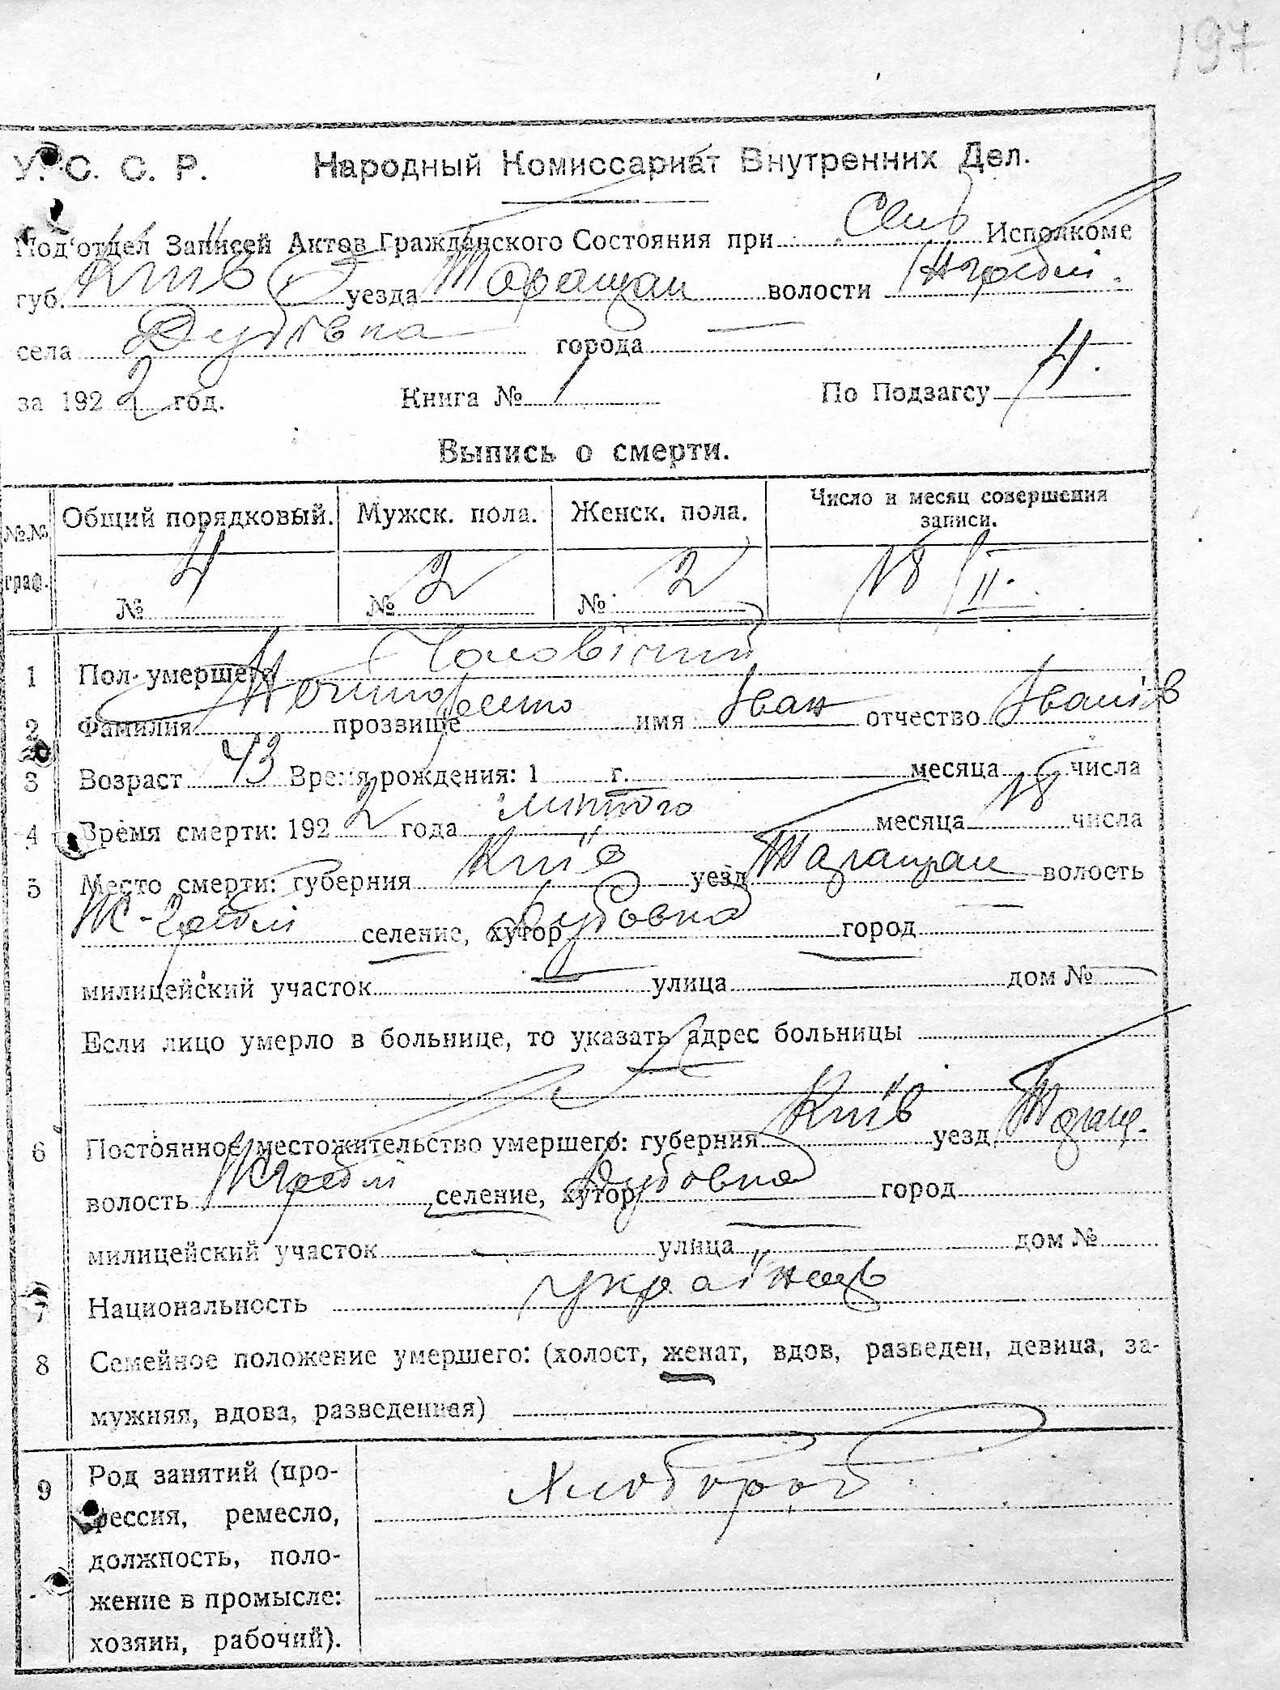 197
У. С. С. Р. Народный Комиссариат Внутренних Дел.
Под'отдел Записей Актов Гражданского Состояния при Исполкоме
губ. Київ уезда Таращан волости
села Дубівка города
за 1922 год. Книга № 1 По Подзагсу 4.
Выпись о смерти.
№№ граф. Общий порядковый. Мужск. пола. Женск. пола. Число и месяц совершения записи.
№ 4 № 2 № 2 18/II.
1 Пол умершего Чоловічий
2 Фамилия прозвище имя Іван отчество Іванів
3 Возраст 43 Время рождения: 1 г. месяца числа
4 Время смерти: 1922 года лютого месяца 18 числа
5 Место смерти: губерния Київ уезд Таращан волость
селение, хутор Дубовка город
милицейский участок улица дом №
Если лицо умерло в больнице, то указать адрес больницы
6 Постоянное местожительство умершего: губерния Київ уезд Таращ.
волость селение, хутор Дубовка город
милицейский участок улица дом №
7 Национальность українець
8 Семейное положение умершего: (холост, женат, вдов, разведен, девица, за-
мужняя, вдова, разведенная)
9 Род занятий (про-
фессия, ремесло,
должность, поло-
жение в промысле:
хозяин, рабочий).
Хлібороб